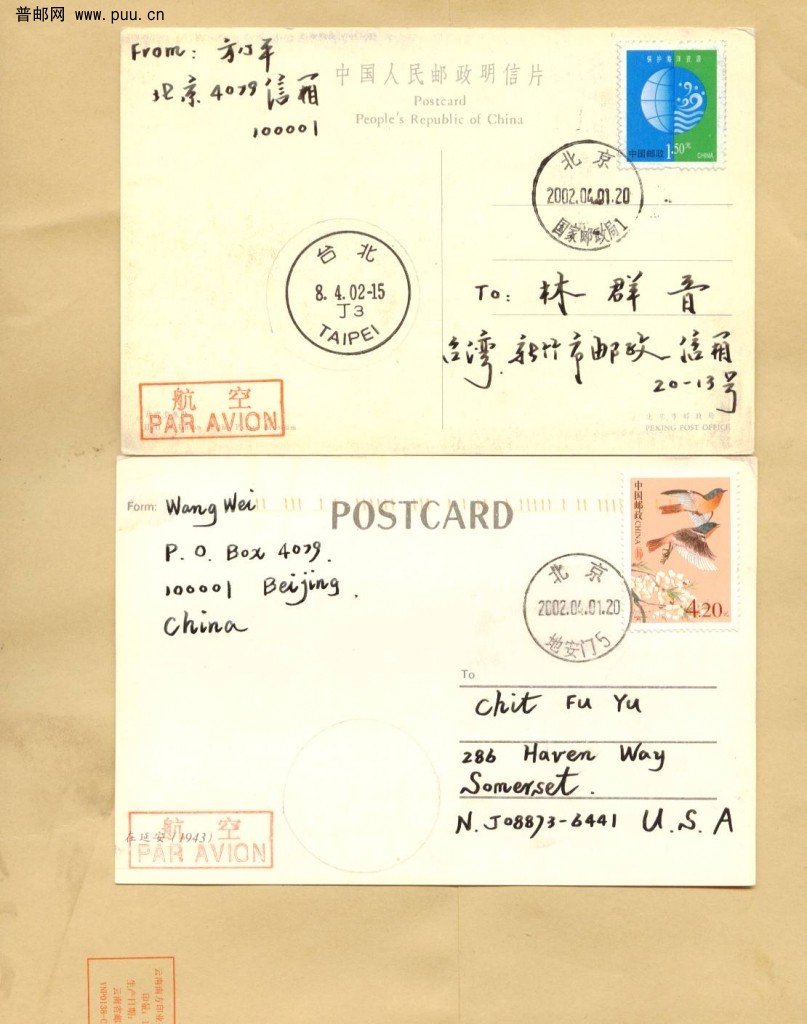 普邮网 www.puu.cn
From: 方小平
北京4079信箱
100001
中国人民邮政明信片
Postcard
People's Republic of China
保护海洋资源
中国邮政 1.50元 CHINA
北京
2002.04.01.20
国家邮政局1
台北
8.4.02-15
J3
TAIPEI
To: 林群音
台湾.新竹市邮政信箱
20-13号
航空
PAR AVION
北京市邮政局
PEKING POST OFFICE
Form: Wang Wei
POSTCARD
P.O. Box 4079.
100001 Beijing.
China
中国邮政 CHINA
4.20
北京
2002.04.01.20
地安门5
To
Chit Fu Yu
286 Haven Way
Somerset.
N.J08873-6441 U.S.A
航空
在延安(1943)
PAR AVION
云南南方印业
印量:
生产日期:
云南省邮